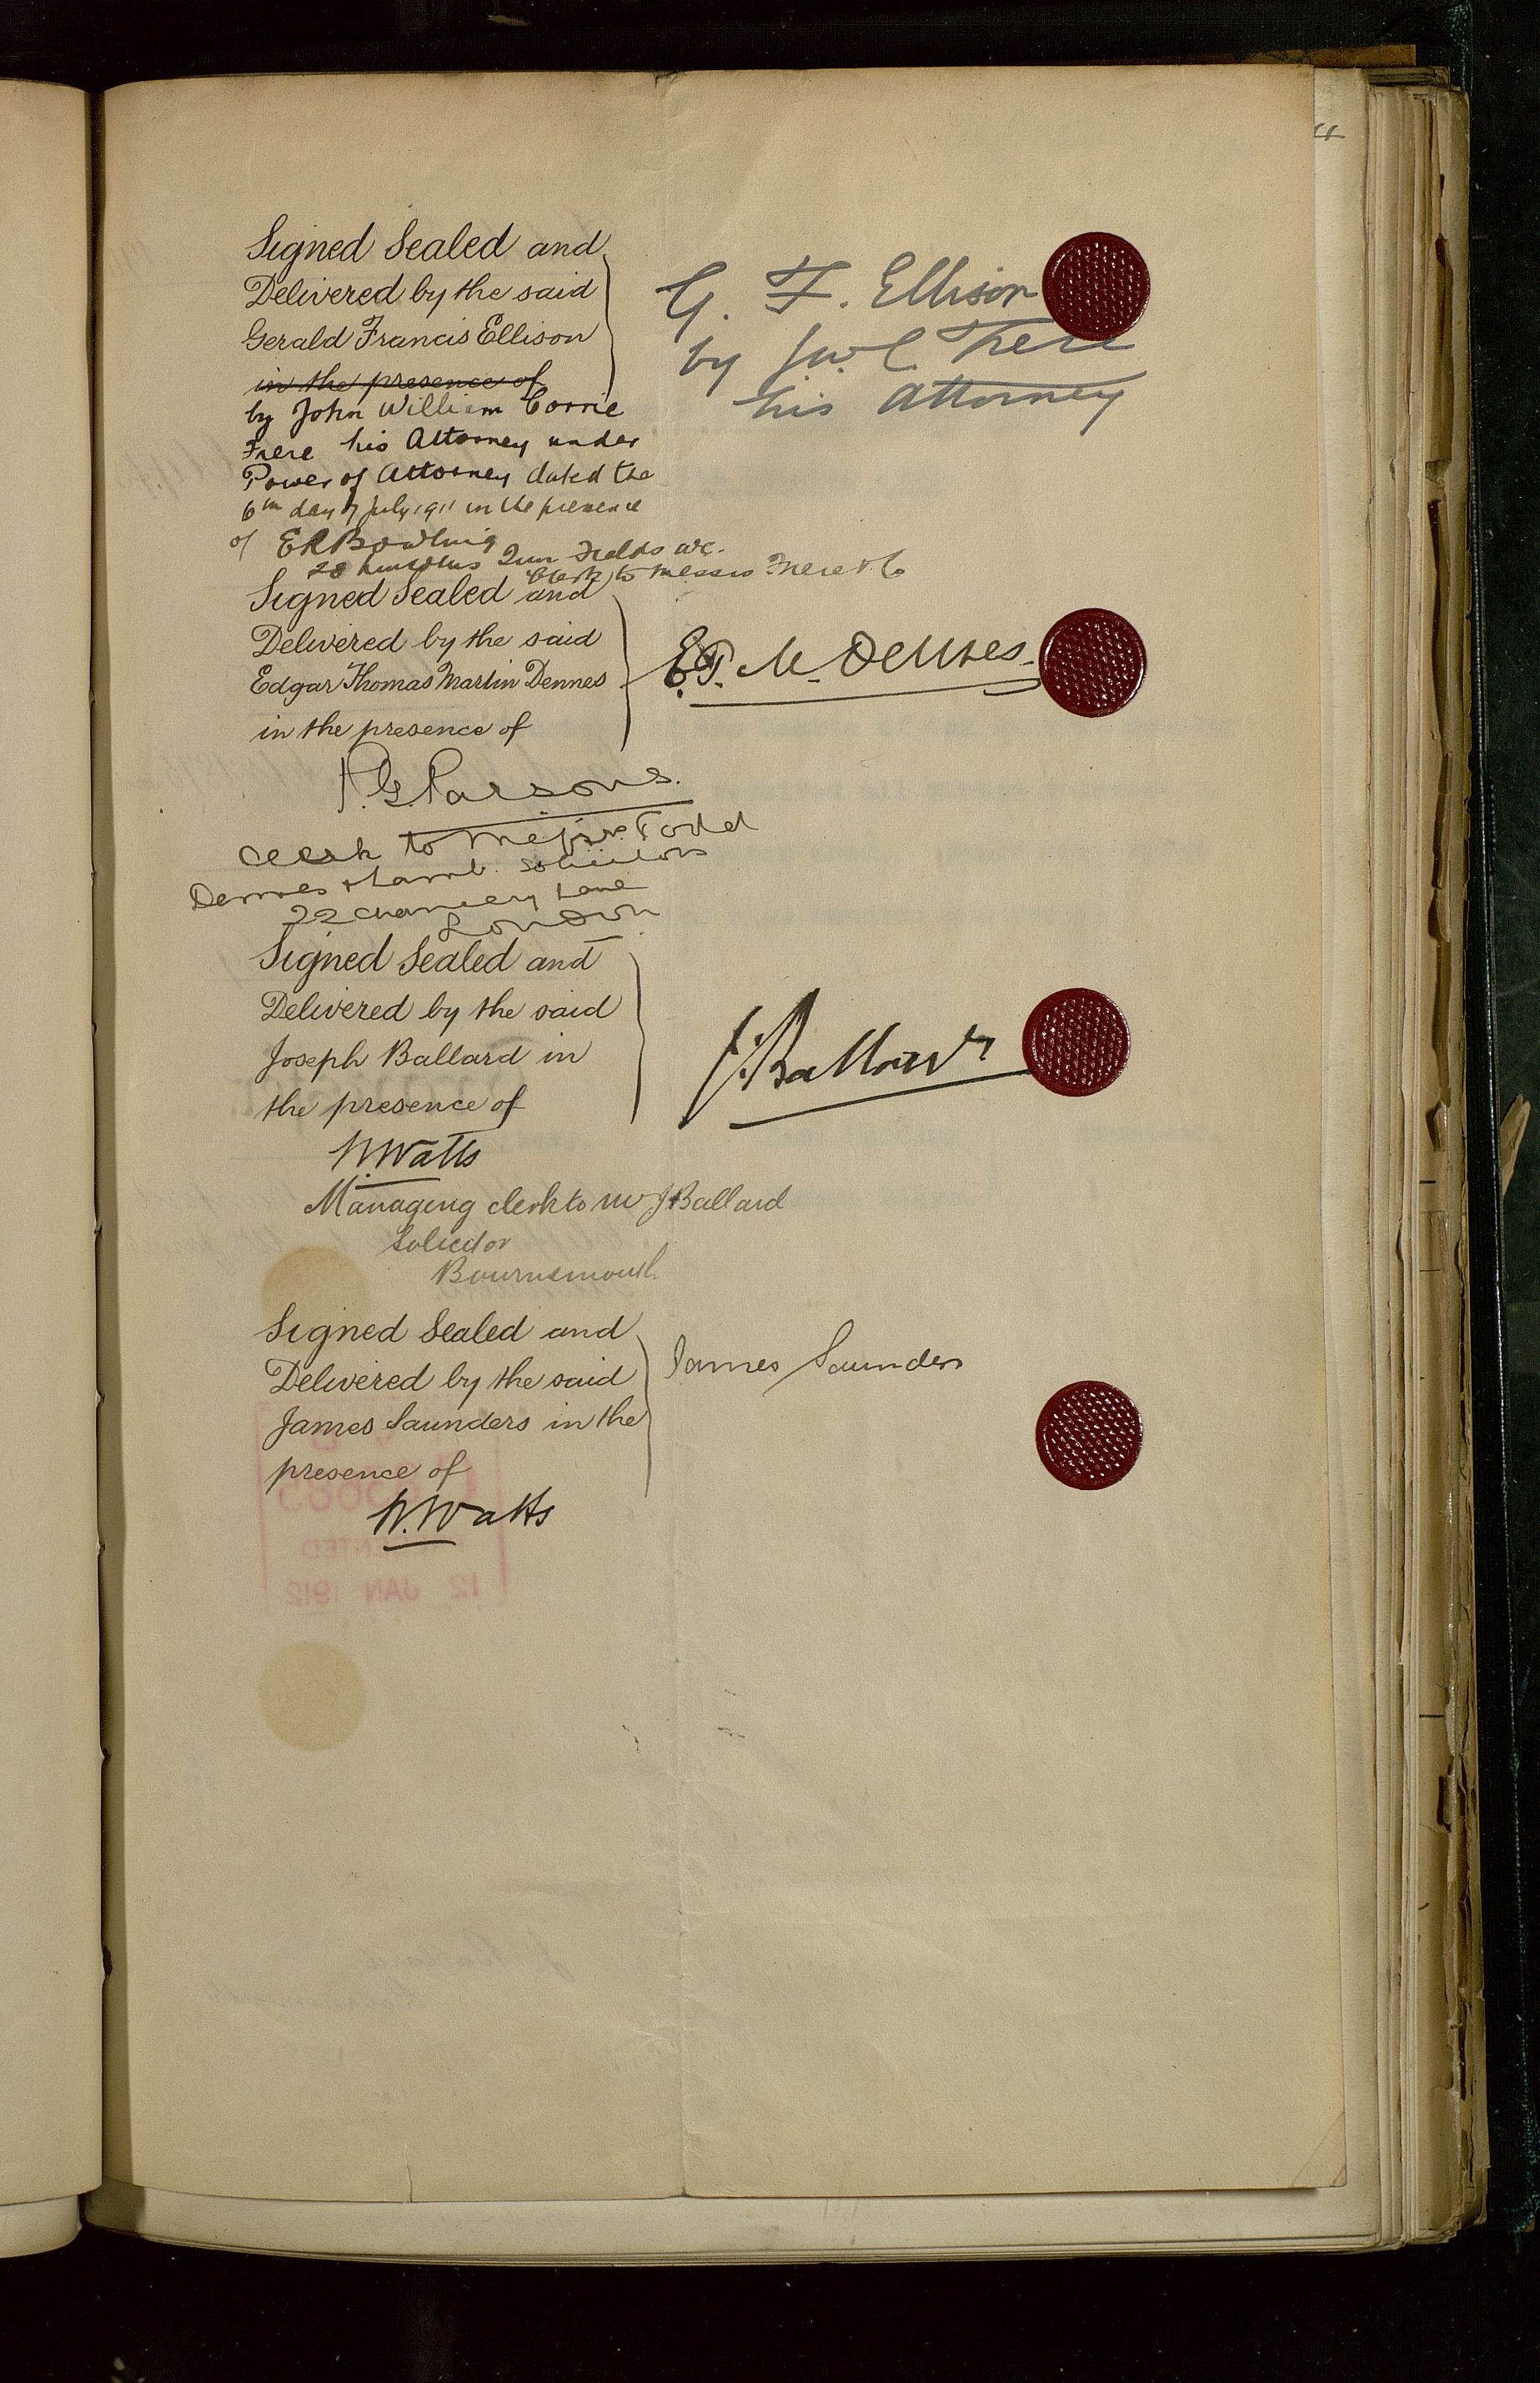 Signed Sealed and
Delivered by the said
Gerald Francis Ellison
in the presence of
by John William Corrie
Frere his Attorney under
Power of Attorney dated the
6th day of July 1911 in the presence
of E R Bowling
28 Lincolns Inn Fields W.C.
Clerk to Messrs Frere & Co
G. F. Ellison
by J.W.C. Frere
his Attorney
Signed Sealed and
Delivered by the said
Edgar Thomas Martin Dennes
in the presence of
E.T. M. Dennes.
P.G. Parsons.
Clerk to Messrs Todd
Dennes & Lamb. Solicitors
22 Chancery Lane
London
Signed Sealed and
Delivered by the said
Joseph Ballard in
the presence of
J. Ballard
W. Watts
Managing clerk to Mr J Ballard
Solicitor
Bournemouth
Signed Sealed and
Delivered by the said
James Saunders in the
presence of
James Saunders
W. Watts
12 JAN 1912